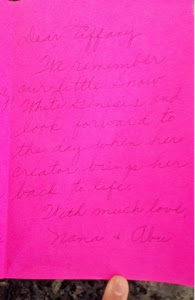 Dear Tiffany
We remember
our little Snow
White and
look forward to
the day when her
creator brings her
back to life.
With much love
Nana + Abu